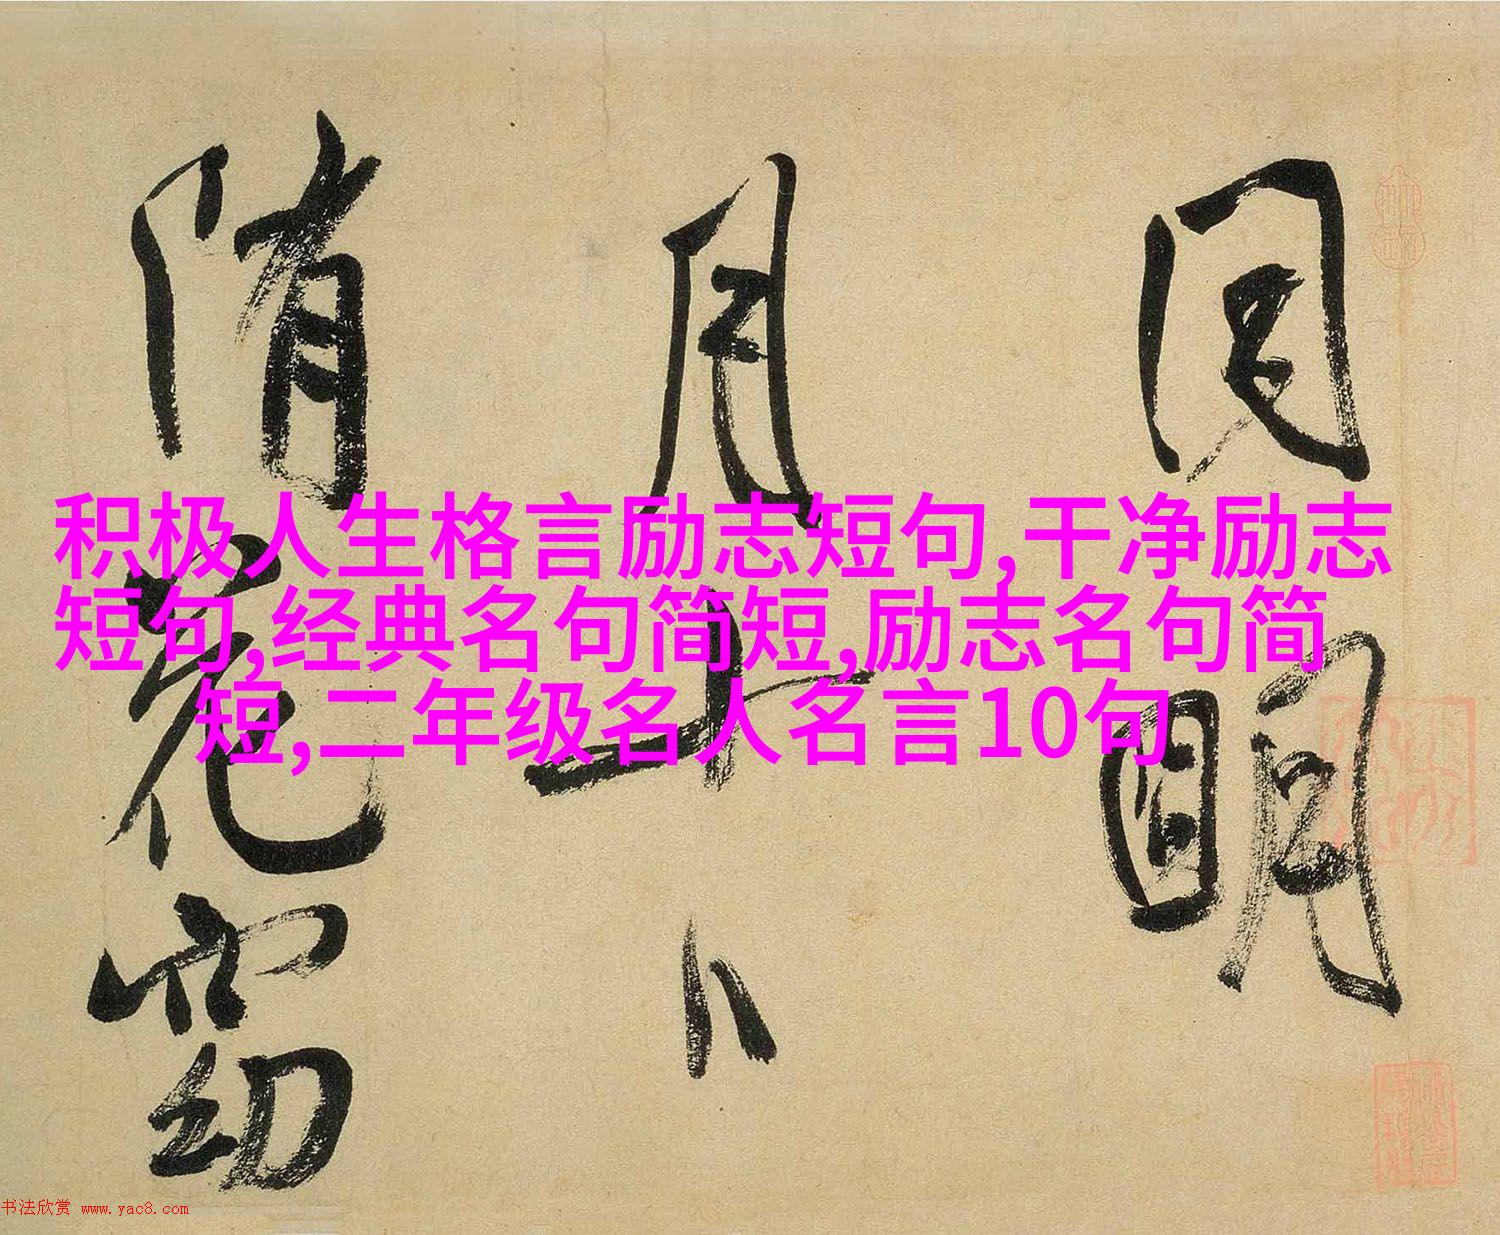 积极人生格言励志短句,干净励志
短句,经典名句简短,励志名句简
短,二年级名人名言10句
月十八
随花窈
书法欣赏 www.yac8.com